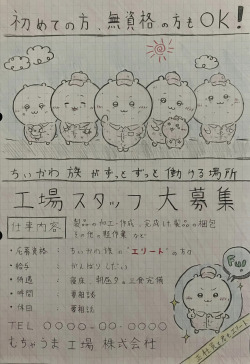 初めての方、無資格の方もOK!
ちいかわ族がずっとずっと働ける場所
工場スタッフ大募集
仕事内容
製品の加工・作成、完成した製品の梱包
その他の軽作業 など
・応募資格 : ちいかわ族の"エリート"の方
・給与 : がんばりしだい
・待遇 : 毎度 朝昼夕の三食完備
・時間 : 要相談
・休日 : 要相談
TEL 0000-00-0000
むちゃうま工場 株式会社